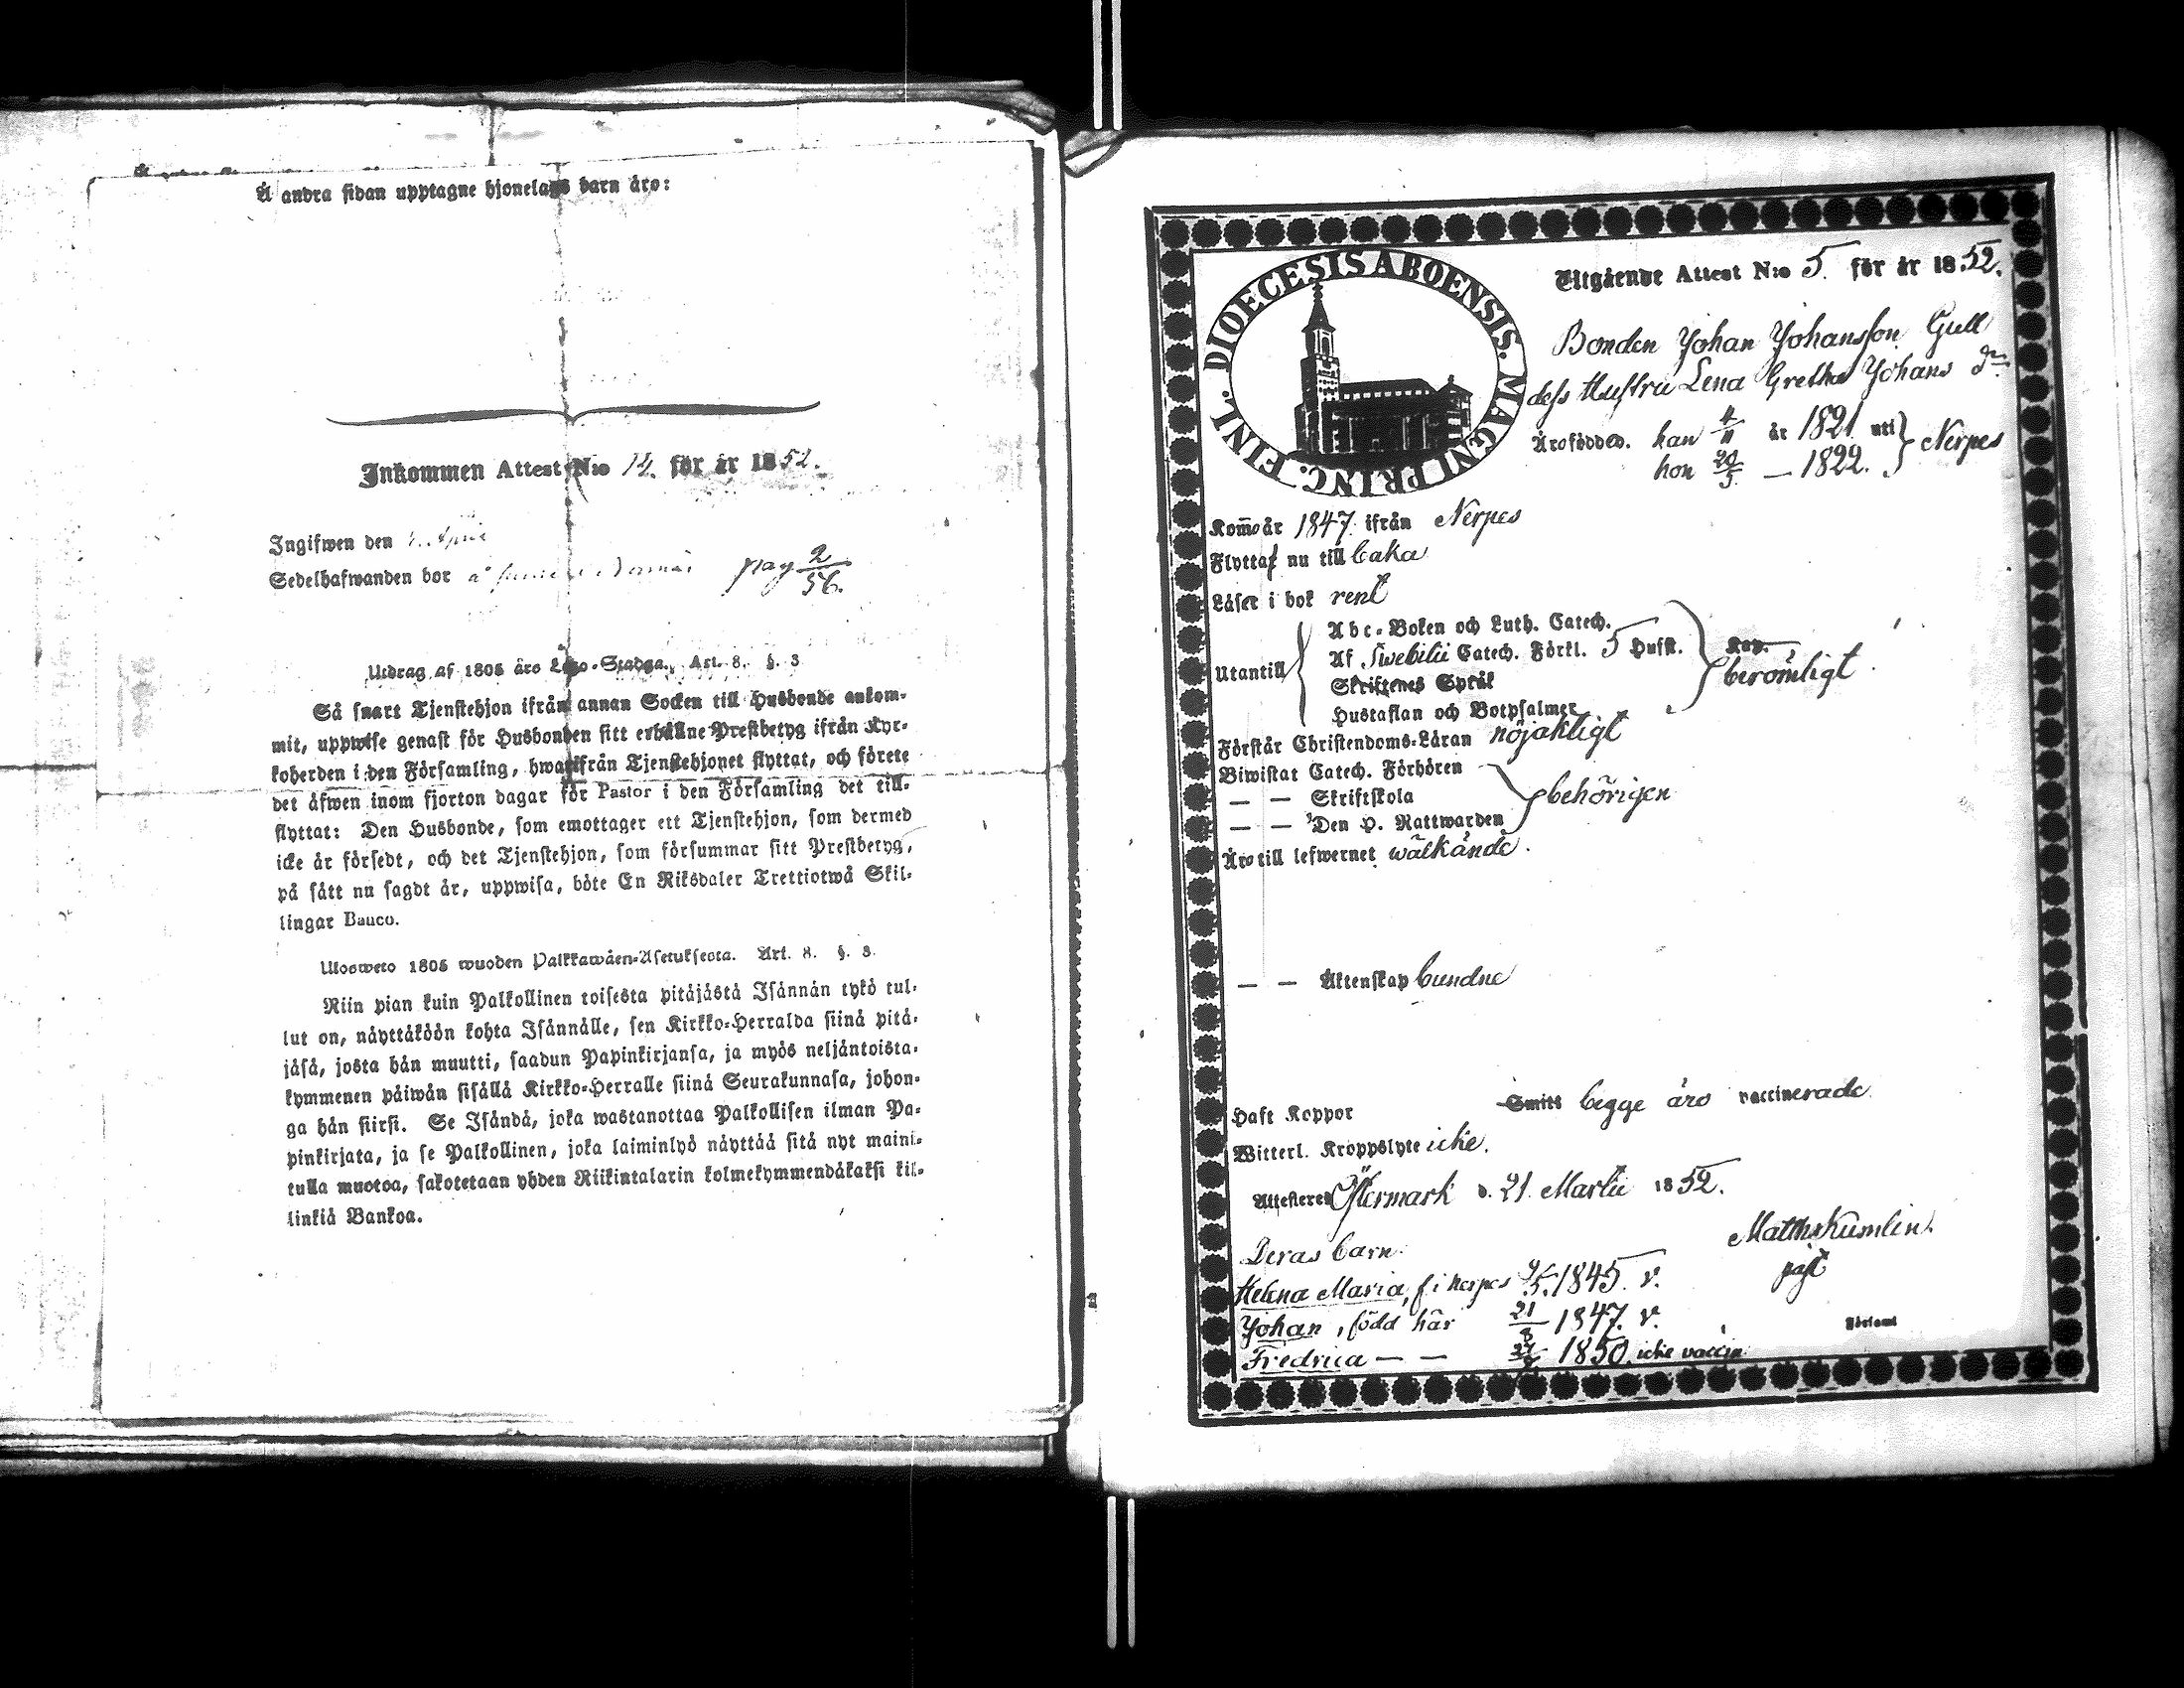 Å andra sidan upptagne hjonelags barn äro:
Inkommen Attest N:o 12. för år 1852.
Ingifwen den April
Sedelhafwanden bor å pag 2/56.
Utdrag af 1805 års Lego-Stadga. Art. 8. §. 3
Så snart Tjenstehjon ifrån annan Socken till Husbonde ankom-
mit, uppwise genast för Husbonden sitt erhållne Prestbetyg ifrån Kyr-
koherden i den Församling, hwarifrån Tjenstehjonet flyttat, och förete
det äfwen inom fjorton dagar för Pastor i den Församling det till-
flyttat: Den Husbonde, som emottager ett Tjenstehjon, som dermed
icke är försedt, och det Tjenstehjon, som försummar sitt Prestbetyg,
på sätt nu sagdt är, uppwisa, böte En Riksdaler Trettiotwå Skil-
lingar Banco.
Ulosweto 1805 wuoden Palkkawäen-Asetuksesta. Art. 8. §. 3.
Niin pian kuin Palkollinen toisesta pitäjästä Isännän tykö tul-
lut on, näyttäköön kohta Isännälle, sen Kirkko-Herralda siinä pitä-
jäsä, josta hän muutti, saadun Papinkirjansa, ja myös neljäntoista-
kymmenen päiwän sisällä Kirkko-Herralle siinä Seurakunnasa, johon-
ga hän siirsi. Se Isändä, joka wastanottaa Palkollisen ilman Pa-
pinkirjata, ja se Palkollinen, joka laiminlyö näyttää sitä nyt maini-
tulla muotoa, sakotetaan yhden Riikintalarin kolmekymmendäkaksi kil-
linkiä Bankoa.
DIOECESIS ABOENSIS. MAGNI PRINC. FINL.
Utgående Attest N:o 5. för år 1852.
Bonden Johan Johansson Gull
dess Hustru Lena Gretha Johans dr
Äro födde. han 4/11 år 1821 uti } Nerpes
hon 20/5. — 1822.
Kom̄o år 1847. ifrån Nerpes
Flytta nu till Caka
Läser i bok rent
Utantill { Abc-Boken och Luth. Catech.
Af Swebilii Catech. Förkl. 5 Hufst. Kap.
berömligt
Skriftenes Språk
Hustaflan och Botpsalmer
Förstår Christendoms-Läran nöjaktigt
Biwistat Catech. Förhören
— — Skriftskola } behörigen
— — Den H. Nattwarden
Äro till lefwernet wälkände.
— — Äktenskap bundne
Haft Koppor Smitt begge äro vaccinerade
Witterl. Kroppslyte icke.
Attesteres Östermark d. 21. Martii 1852.
Matths Kumlin.
past
Deras barn.
Helena Maria, f. i Nerpes 9/5. 1845. v.
Johan, född här 21/3 1847. v.
Församl
Fredrica — — 1850. icke vaccin